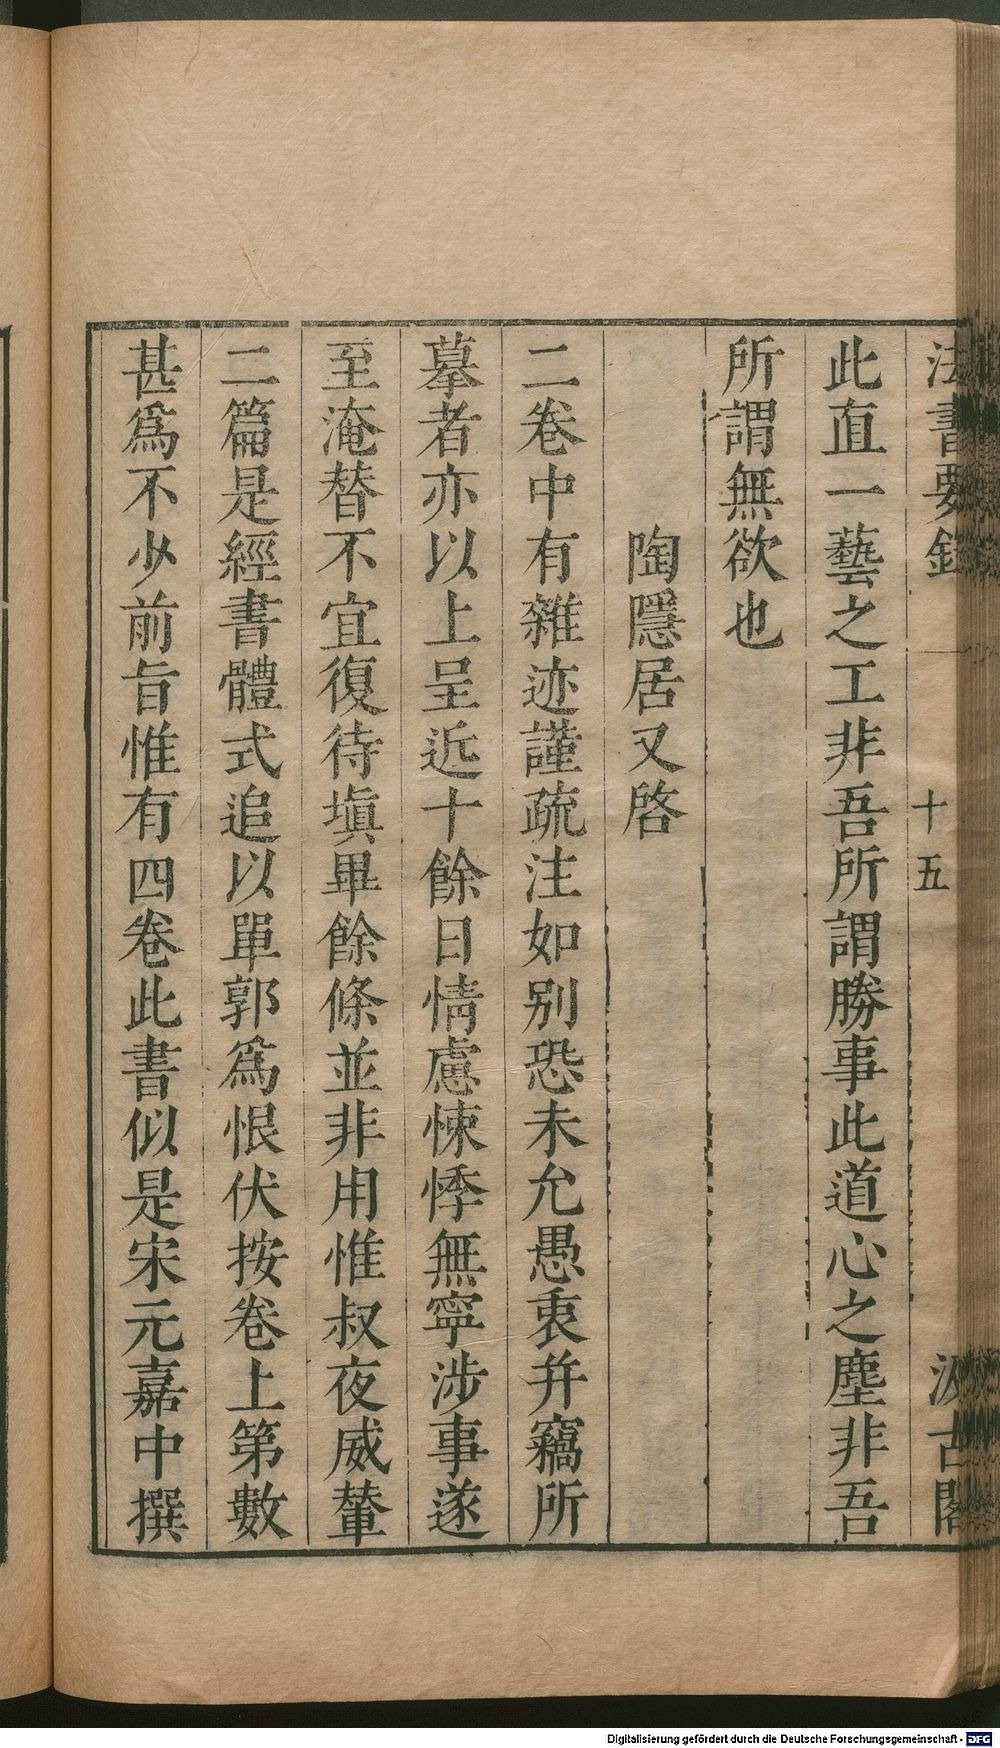 法書要錄 十五 汲古閣
此直一藝之工非吾所謂勝事此道心之塵非吾
所謂無欲也
陶隱居又啓
二卷中有雜迹謹疏注如別恐未允愚衷幷竊所
摹者亦以上呈近十餘日情慮悚悸無寧涉事遂
至淹替不宜復待塡畢餘條並非用惟叔夜威輦
二篇是經書體式追以單郭爲恨伏按卷上第數
甚爲不少前旨惟有四卷此書似是宋元嘉中撰
Digitalisierung gefördert durch die Deutsche Forschungsgemeinschaft - DFG